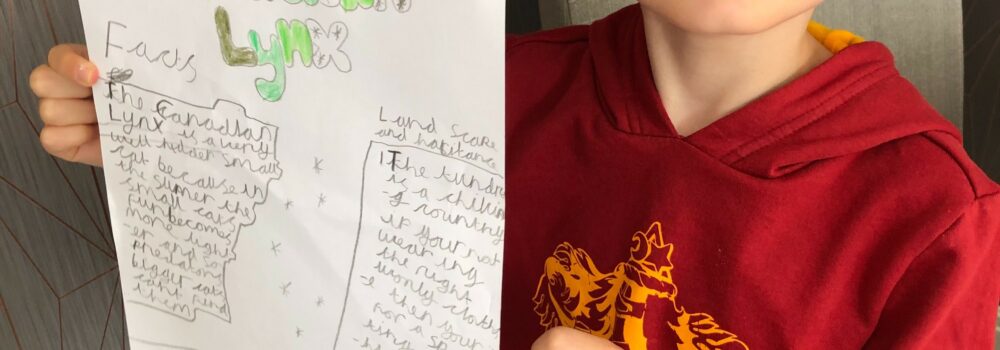 Lynx
Facts
The Canadian
Lynx is a very
well hidden small
cat because in
the sumer the
small cats
fur becomes
more light
er and so
bigger cats
cant find
them
Land Scape
and habitance
The tundr
is a chillin
-g country
if your not
wearing
the right
wooly cloth
-e then your
for a